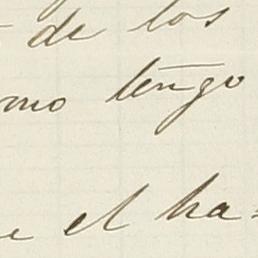 de los
mo tengo
el ha=